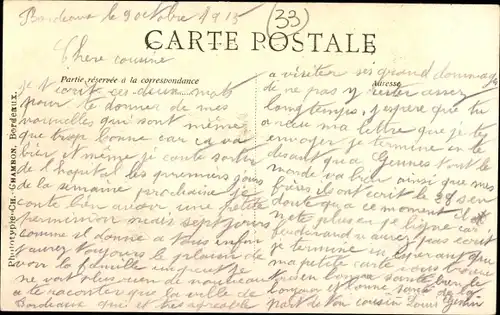 Bordeaux le 9 octobre 1915
(33)
CARTE POSTALE
Chère cousine
Partie réservée à la correspondance
Adresse
je t'écrit ces deux mots
pour te donner de mes
nouvelles qui sont même
que trop bonne car ca va
bien et même je conte sortir
de l'hapital les premiers jours
de la semaine prochaine je
conte bien avoir une petite
permission mais sept jours
comme il donne a tous enfin
j'aurez toujours le plaisir de
voir la famille un peut je
ne voit plus rien de nouveau
a te raconter que la ville de
Bordeaux qui et très agréable
a visiter ses grand dommage
de ne pas y rester assez
longtemps j'espère que tu
a reçu ma lettre que je t'ai
envoyer je termine en te
desant qua Gennes tout le
monde va bien ainsi que mes
frères il ont écrit le 28 sen
doute que ce moment il
nete plus en ligne car
ferdinand n'aurez pas écrit
je termine en esperant que
ma petite carte vous trouve
en bonne santé
bonjour et bonne santé de la
part de ton cousin Louis
Phototypie CH. CHAMBON, Bordeaux.